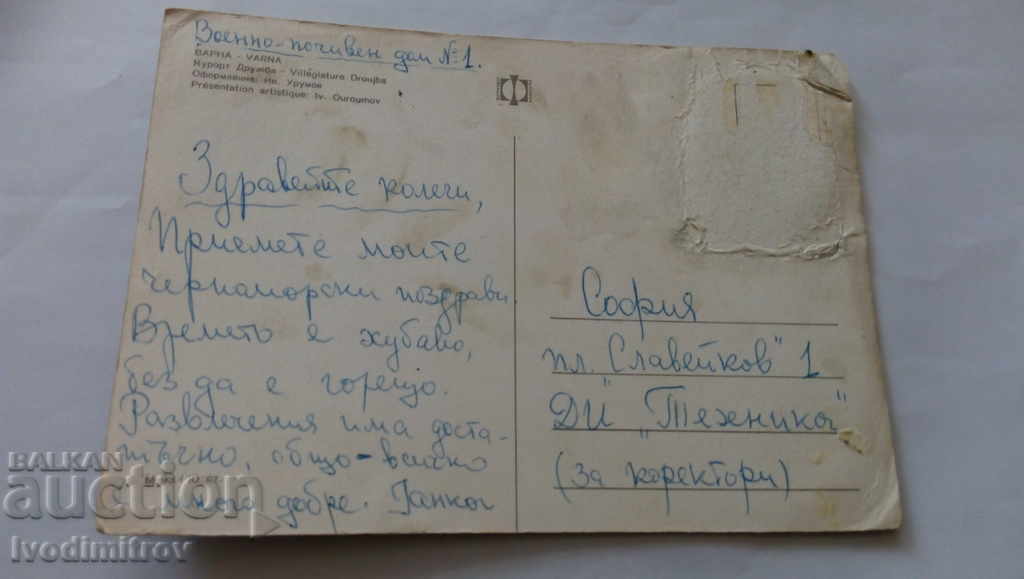 Военно-почивен дом №1.
ВАРНА - VARNA
Курорт Дружба - Villégiature Droujba
Оформление: Ив. Урумов
Présentation artistique: Iv. Ouroumov
Здравейте колеги,
Приемете моите
черноморски поздрави
Времето е хубаво,
без да е горещо.
Развлечения има доста-
тъчно, общо-взичко
много добре. Ганка
София
пл. Славейков" 1
ДИ „Техника"
(за коректори)
BALKAN
auction
Ivodimitrov